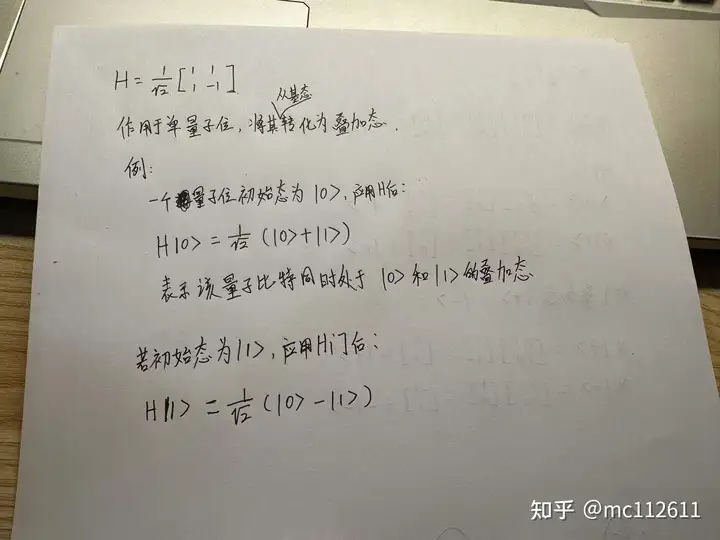 H = 1/√2 [1 1
1 -1]
从基态
作用于单量子位,将其转化为叠加态.
例:
一个量子位初始态为 |0>,应用H后:
H|0> = 1/√2 (|0>+|1>)
表示该量子比特同时处于 |0> 和 |1> 的叠加态
若初始态为 |1>,应用H门后:
H|1> = 1/√2 (|0>-|1>)
知乎 @mc112611